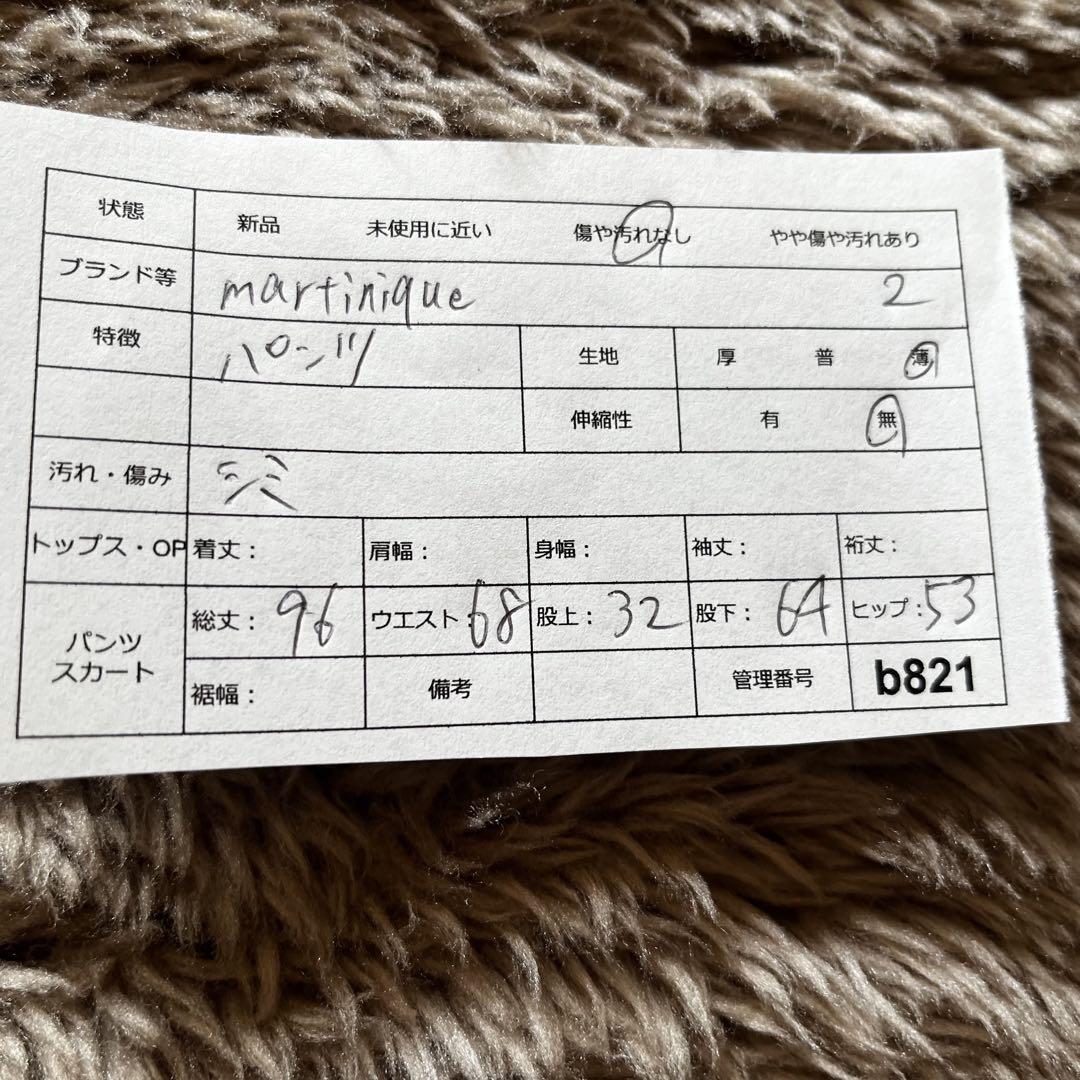 状態 新品 未使用に近い 傷や汚れなし やや傷や汚れあり
ブランド等 martinique 2
特徴 パンツ 生地 厚 普 薄
伸縮性 有 無
汚れ・傷み シミ
トップス・OP 着丈： 肩幅： 身幅： 袖丈： 裄丈：
パンツ スカート 総丈：96 ウエスト：68 股上：32 股下：64 ヒップ：53
裾幅： 備考 管理番号 b821